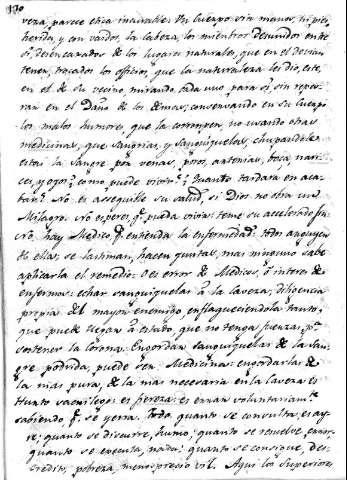 170
vera, parece etica incurable. Un Cuerpo sin manos, ni pies
herida, y con vaidos, la cabeza, los miembros desunidos entre
sí, desencaxados de los lugares naturales, que en el devian
tener, trocados los officios, que la naturaleza les dio, este,
en el de su vecino, mirando, cada uno para sí, sin repa
ran en el Daño de los demas, conservando en su Cuerpo
los malos humores, que la corrompen, no usando otras
medicinas, que Sangrias, y Sanguijuelas, chupandole
estas la Sangre por venas, poros, arterias, boca, nari
ces, y ojos: como puede vivir?; Quanto tardara en aca
bar? No es asequible su salud, si Dios no obra un
Milagro. No esperes, q.e pueda vivir: teme su acelerado fin.
No, hay Medico q.e entienda la enfermedad: todos
de ella; se lastiman, hacen juntas, mas ninguno sabe
aplicarla el remedio. O es error de Medicos, o interes de
enfermos: echar sanguijuelas a la caveza; diligencia
propia del mayor enemigo, enflaqueciendola tanto,
que puede llegar a estado que no tenga fuerzas, p.a
sostener la Corona. Engordan sanguijuelas de la San
gre podrida, puede ser Medicina: engordarlas de
la mas pura, de la mas necesaria en la caveza es
Hurto sacrilego: es fiereza: es erran voluntariam.te
sabiendo q.e se yerra. Todo quanto se consulta, es ay
re; quanto se discurre, humo; quanto se resuelve, error,
quanto se executa, nada; quanto se consigue, des
credito, pobreza, menosprecio vil. Aquí los Superiores